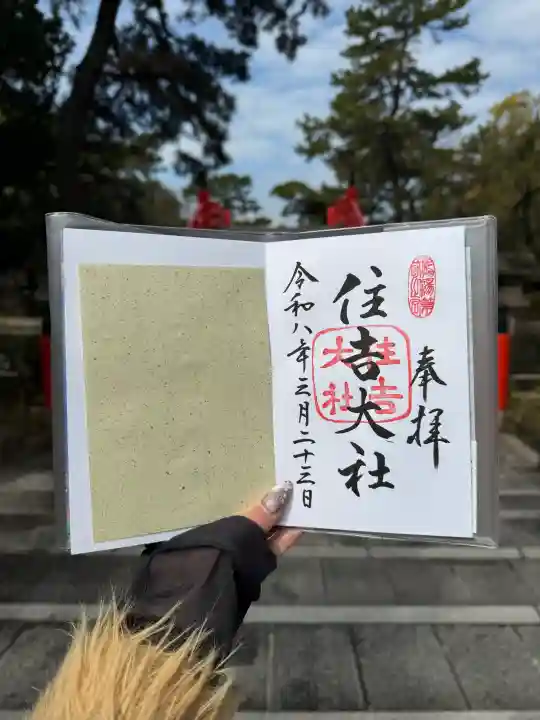 奉拝
住吉大社
住吉大社
令和八年三月二十三日